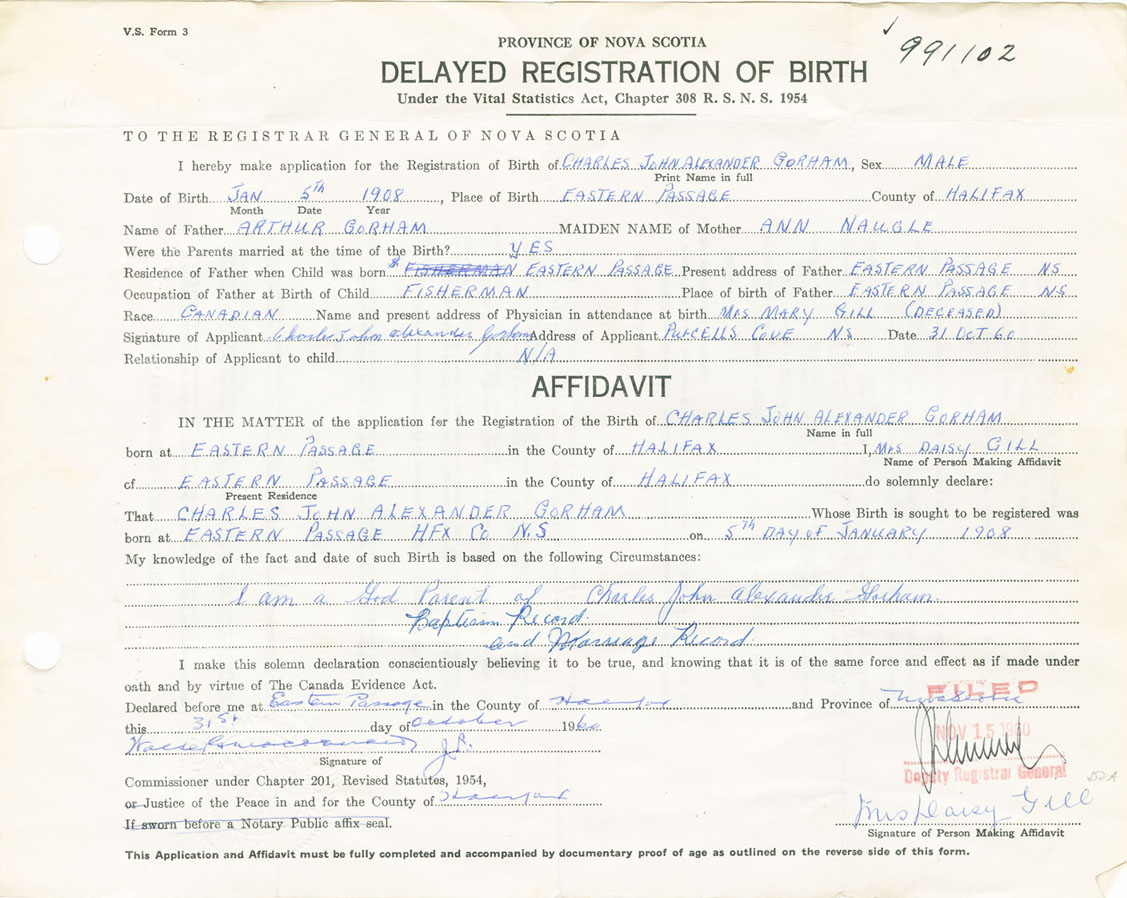 V.S. Form 3
991102
PROVINCE OF NOVA SCOTIA
DELAYED REGISTRATION OF BIRTH
Under the Vital Statistics Act, Chapter 308 R. S. N. S. 1954
TO THE REGISTRAR GENERAL OF NOVA SCOTIA
I hereby make application for the Registration of Birth of CHARLES JOHN ALEXANDER GORHAM, Sex MALE
Print Name in full
Date of Birth JAN 5th 1908, Place of Birth EASTERN PASSAGE County of HALIFAX
Month Date Year
Name of Father ARTHUR GORHAM MAIDEN NAME of Mother ANN NAUGLE
Were the Parents married at the time of the Birth? YES
Residence of Father when Child was born FISHERMAN EASTERN PASSAGE Present address of Father EASTERN PASSAGE NS
Occupation of Father at Birth of Child FISHERMAN Place of birth of Father EASTERN PASSAGE NS
Race CANADIAN Name and present address of Physician in attendance at birth MRS MARY GILL (DECEASED)
Signature of Applicant Charles John Alexander Gorham Address of Applicant PURCELLS COVE NS Date 31 OCT 60
Relationship of Applicant to child N/A
AFFIDAVIT
IN THE MATTER of the application for the Registration of the Birth of CHARLES JOHN ALEXANDER GORHAM
Name in full
born at EASTERN PASSAGE in the County of HALIFAX I, MRS DAISY GILL
Name of Person Making Affidavit
of EASTERN PASSAGE in the County of HALIFAX do solemnly declare:
Present Residence
That CHARLES JOHN ALEXANDER GORHAM Whose Birth is sought to be registered was
born at EASTERN PASSAGE HFX Co N.S on 5TH DAY OF JANUARY 1908
My knowledge of the fact and date of such Birth is based on the following Circumstances:
I am a God Parent of Charles John Alexander Gorham.
Baptism Record.
and Marriage Record.
I make this solemn declaration conscientiously believing it to be true, and knowing that it is of the same force and effect as if made under
oath and by virtue of The Canada Evidence Act.
Declared before me at Eastern Passage in the County of Halifax and Province of Nova Scotia
FILED
this 31st day of October 1960
NOV 15 1960
J.P.
Signature of
Deputy Registrar General
Commissioner under Chapter 201, Revised Statutes, 1954,
or Justice of the Peace in and for the County of Halifax
If sworn before a Notary Public affix seal.
Mrs Daisy Gill
Signature of Person Making Affidavit
This Application and Affidavit must be fully completed and accompanied by documentary proof of age as outlined on the reverse side of this form.